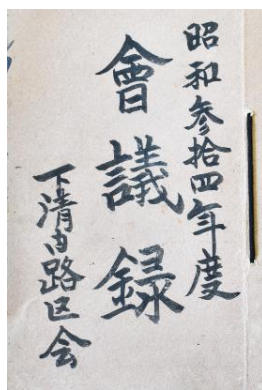 昭和参拾四年度
會議録
下清内路区会